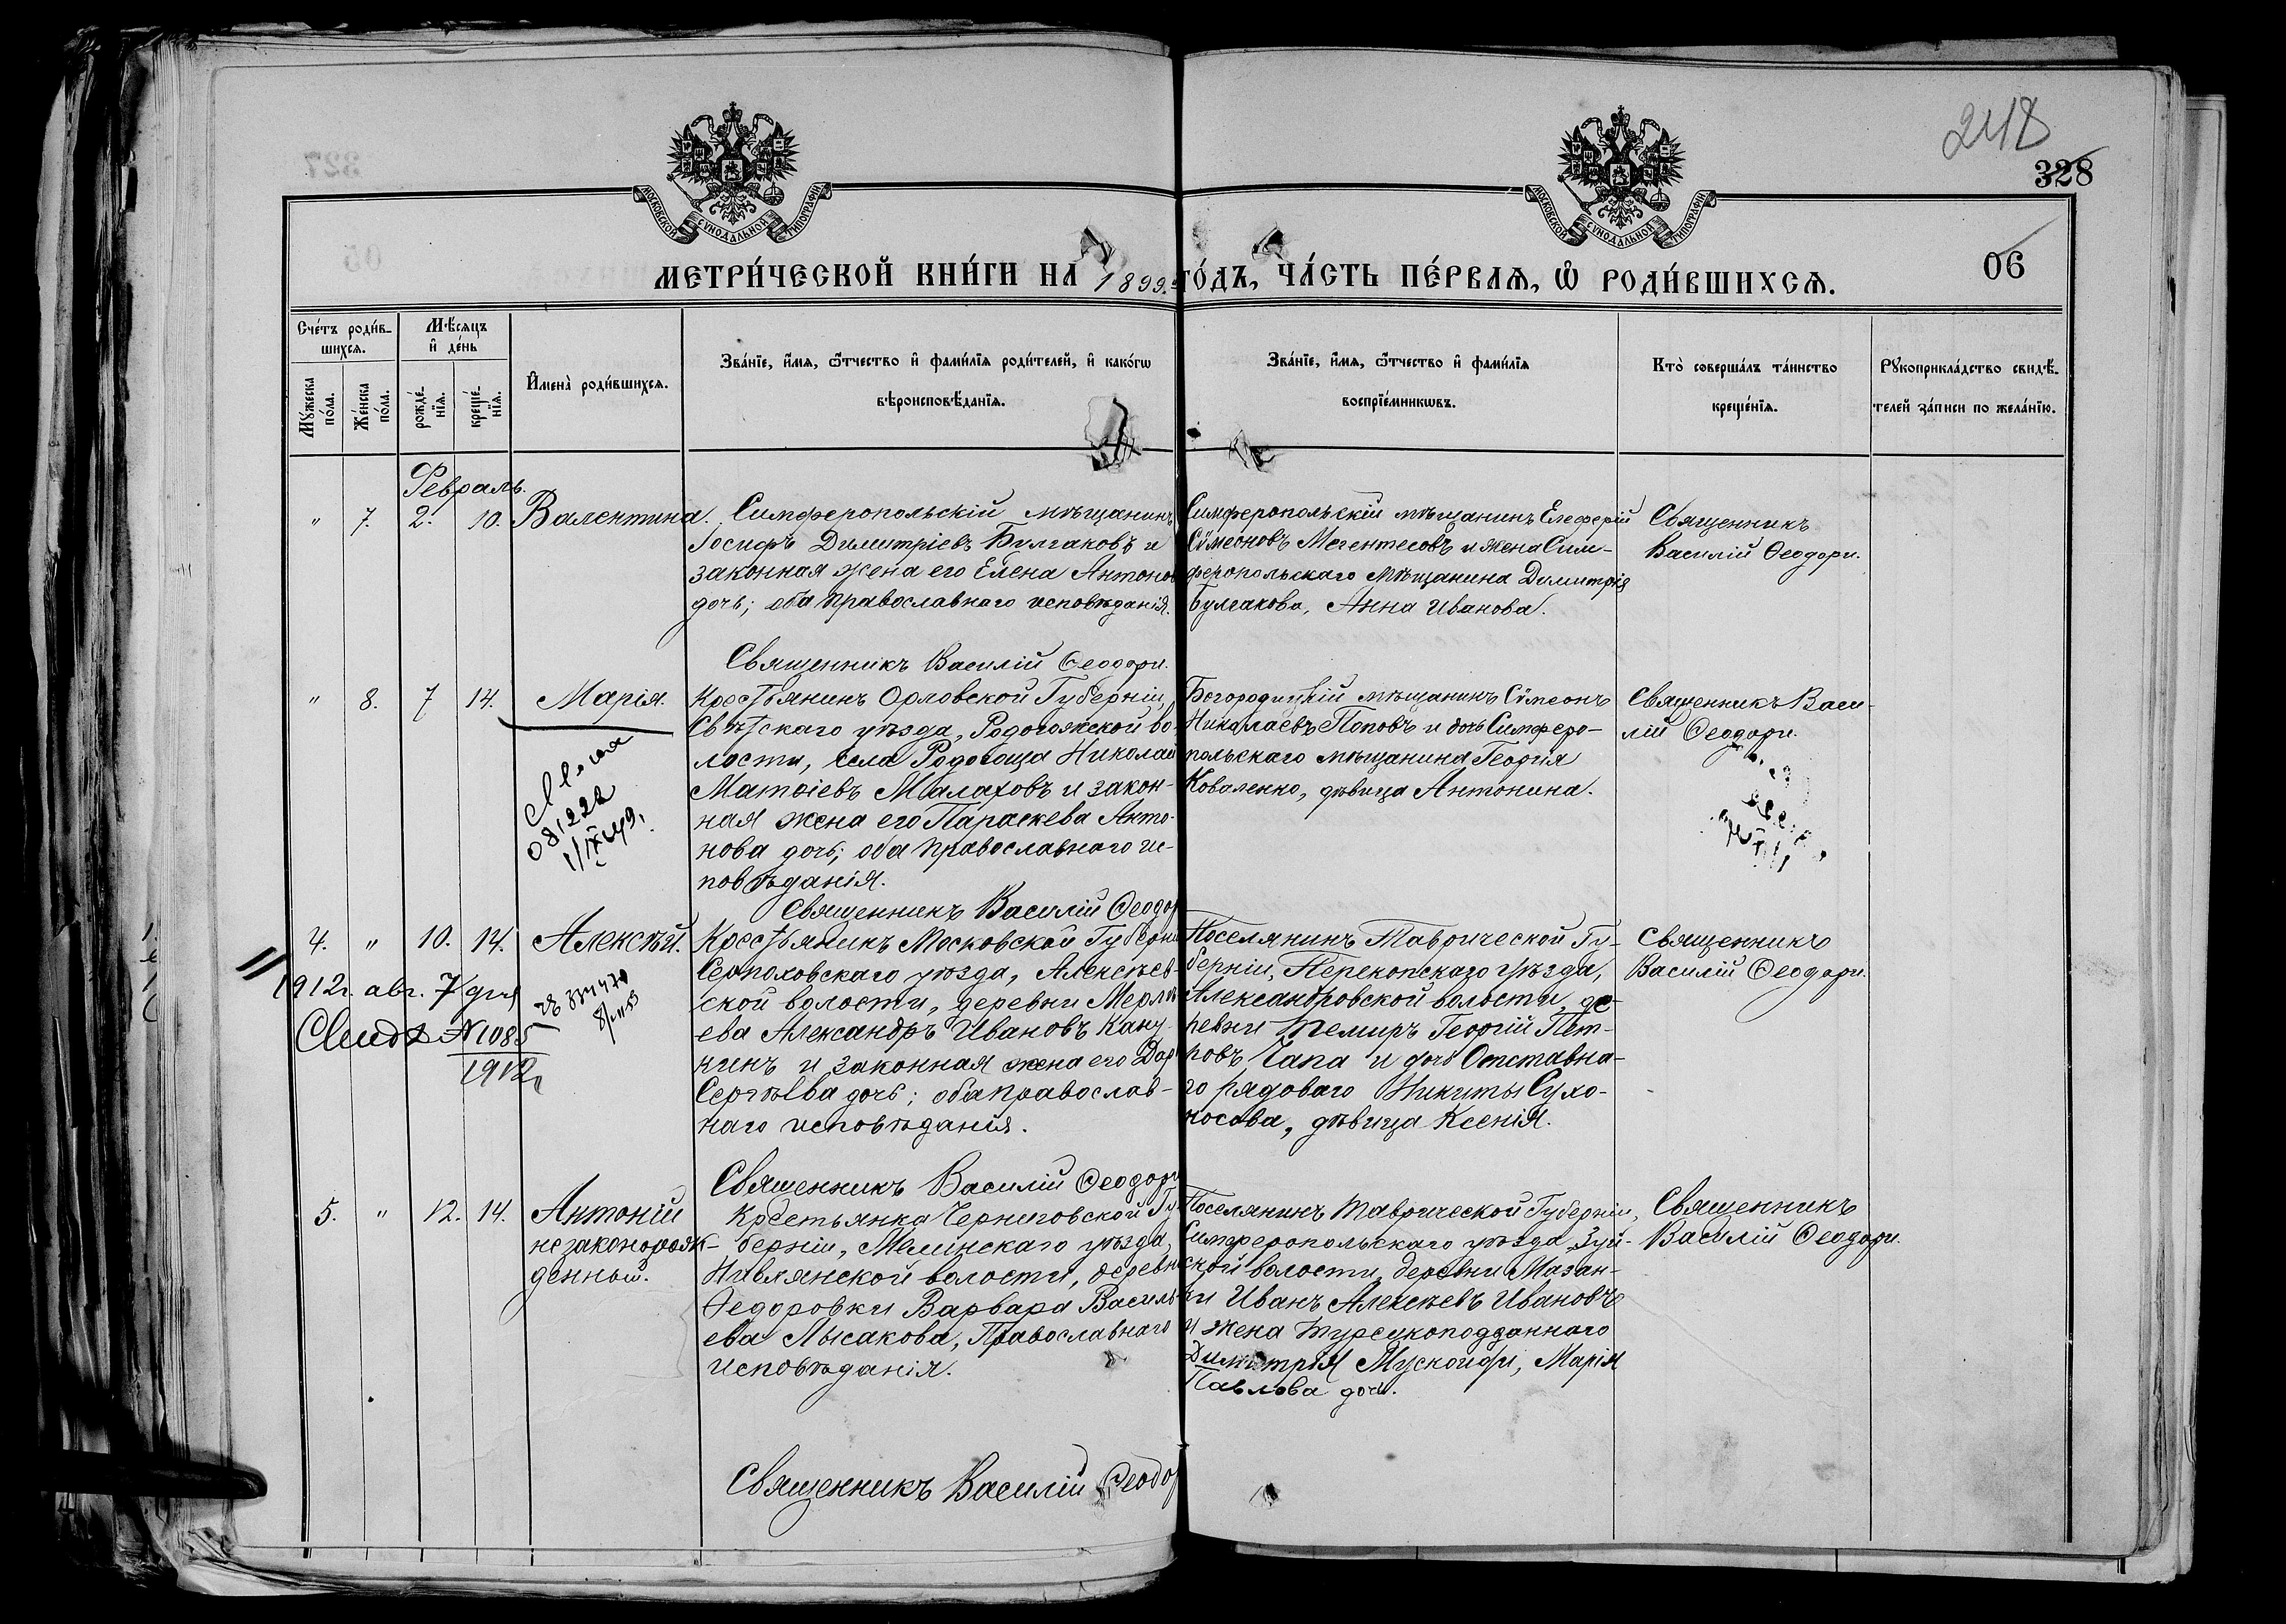 218
328
06
МОСКОВСКОЙ СУНОДАЛЬНОЙ ТИПОГРАФІИ
МОСКОВСКОЙ СУНОДАЛЬНОЙ ТИПОГРАФІИ
МЕТРИ́ЧЕСКОЙ КНИ́ГИ НА 1899 ГО́ДЪ, ЧА́СТЬ ПЕ́РВАѦ, Ѡ҆ РОДИ́ВШИХСѦ.
Сче́тъ роди́в-
шихсѧ.
Мѣ́сѧцъ
и҆ де́нь
Мꙋ́жеска
по́ла.
Же́нска
по́ла.
рожде́-
нїѧ.
креще́-
нїѧ.
И҆мена̀ роди́вшихсѧ.
Зва́нїе, и҆́мѧ, ѻ҆́тчество и҆ фами́лїѧ роди́телей, и҆ како́гѡ
вѣроисповѣ́данїѧ.
Зва́нїе, и҆́мѧ, ѻ҆́тчество и҆ фами́лїѧ
воспрїе́мникѡвъ.
Кто̀ соверша́лъ та́инство
креще́нїѧ.
Рꙋкоприкла́дство свидѣ́-
телей за́писи по жела́нїю.
Февраль.
" 7. 2. 10. Валентина.
Симферопольскій мѣщанинъ
Іосифъ Димитріевъ Булгаковъ и
законная жена его Елена Антонов
дочь; оба Православнаго исповѣданія.
Священникъ Василій Ѳеодори.
Симферопольскій мѣщанинъ Елеферій
Сѵмеоновъ Мегентесовъ и жена Сим-
феропольскаго Мѣщанина Димитрія
Булгакова, Анна Иванова.
Священникъ
Василій Ѳеодори.
" 8. 7 14. Марія.
Крестьянинъ Орловской Губерніи,
Сѣвскаго уѣзда, Родогожской во-
лости, села Родогоща Николай
Матѳіевъ Малаховъ и закон-
ная жена его Параскева Анто-
нова дочь; оба Православнаго ис-
повѣданія.
Священникъ Василій Ѳеодор
Богородицкій мѣщанинъ Сѵмеонъ
Николаевъ Поповъ и дочь Симферо-
польскаго мѣщанина Георгія
Коваленко, дѣвица Антонина.
Священникъ Васи-
лій Ѳеодори.
4. " 10. 14. Алексѣй.
1912г. авг. 7 дня
№ 1085
1912
Крестьянинъ Московской Губерніи
Серпоховскаго уѣзда, Алексѣев-
ской волости, деревни Мерле
ева Александръ Ивановъ Кану-
нинъ и законная жена его Дар
Сергѣева дочь; оба Православ-
наго исповѣданія.
Священникъ Василій Ѳеодори
Поселянинъ Таврической Гу-
берніи, Перекопскаго уѣзда,
Александровской волости, де-
ревни Темиръ Георгій Пет-
ровъ Чапа и дочь Отставна-
го рядоваго Никиты Сухо-
носова, дѣвица Ксенія.
Священникъ
Василій Ѳеодори.
5. " 12. 14. Антоній
незаконорож-
денный.
Крестьянка Черниговской Гу
берніи, Мглинскаго уѣзда,
Нивлянской волости, деревни
Ѳедоровки Варвара Василь
ева Лысакова, Православнаго
исповѣданія.
Священникъ Василій Ѳеодор
Поселянинъ Таврической Губерніи,
Симферопольскаго уѣзда, Зуй-
ской волости, деревни Мазан-
ки Иванъ Алексѣевъ Ивановъ
и жена турецкоподданнаго
Димитрія Мускоиди, Марія
Павлова дочь.
Священникъ
Василій Ѳеодори.